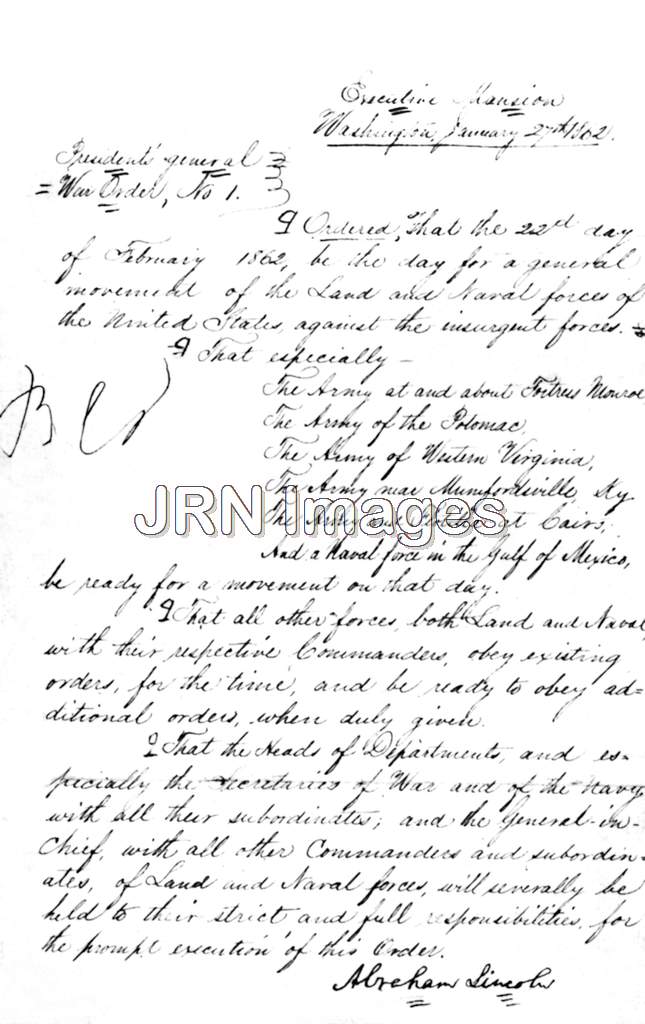 Executive Mansion
Washington, January 27th 1862.
Presidents' general
War Order, No 1.
Ordered, That the 22nd day
of February 1862, be the day for a general
movement of the Land and Naval forces of
the United States, against the insurgent forces.
That especially —
The Army at and about Fortress Monroe
The Army of the Potomac,
The Army of Western Virginia,
The Army near Mumfordsville, Ky.
JRN Images
The Army and Flotilla at Cairo,
And a Naval force in the Gulf of Mexico,
be ready for a movement on that day.
That all other forces, both Land and Naval,
with their respective Commanders, obey existing
orders, for the time, and be ready to obey ad=
ditional orders, when duly given.
That the Heads of Departments, and es-
pecially the Secretaries of War and of the Navy
with all their subordinates; and the General-in-
Chief, with all other Commanders and subordin-
ates, of Land and Naval forces, will severally be
held to their strict and full responsibilities, for
the prompt execution of this Order.
Abraham Lincoln